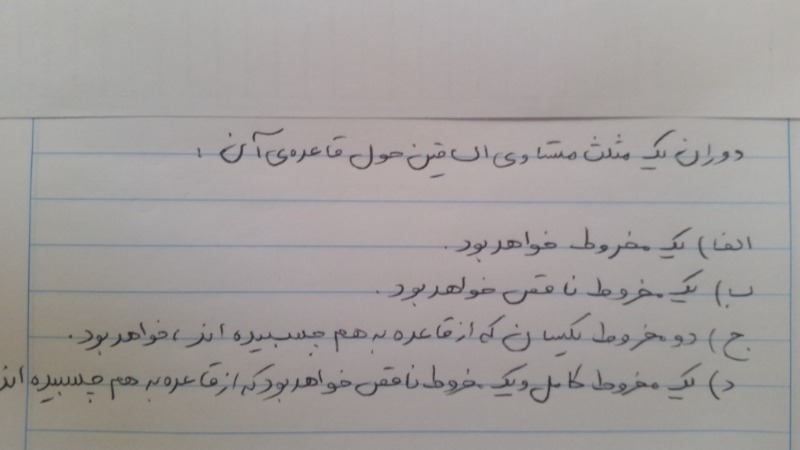 دوران یک مثلث متساوی الساقین حول قاعده‌ی آن :
الف) یک مخروط خواهد بود.
ب) یک مخروط ناقص خواهد بود.
ج) دو مخروط یکسان که از قاعده به هم چسبیده اند، خواهد بود.
د) یک مخروط کامل و یک مخروط ناقص خواهد بود که از قاعده به هم چسبیده اند